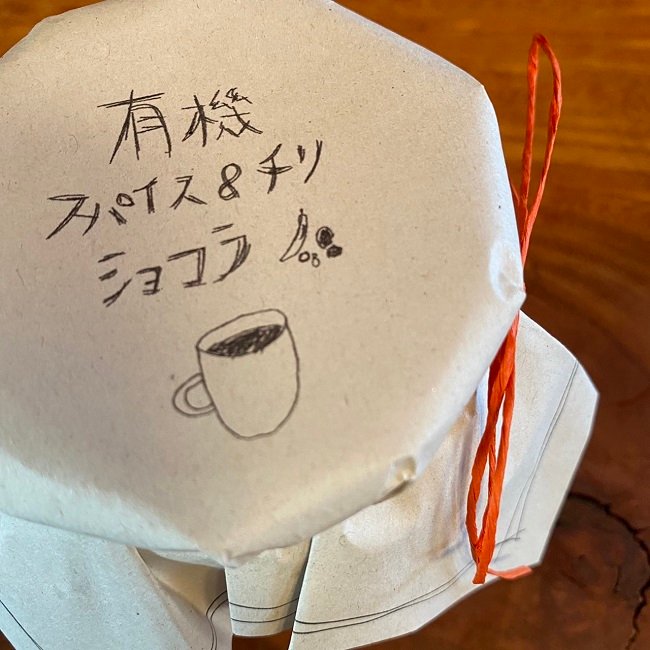 有機
スパイス&チリ
ショコラ